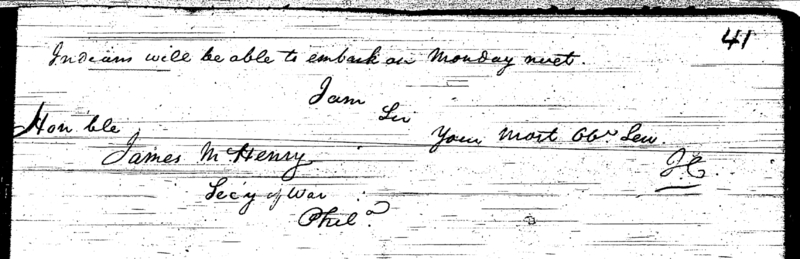 41
Indians will be able to embark on Monday next.
I am
Sir
Hon'ble
Your Most Obt. Ser.
James McHenry
J.C.
Sec'y of War
Phila.